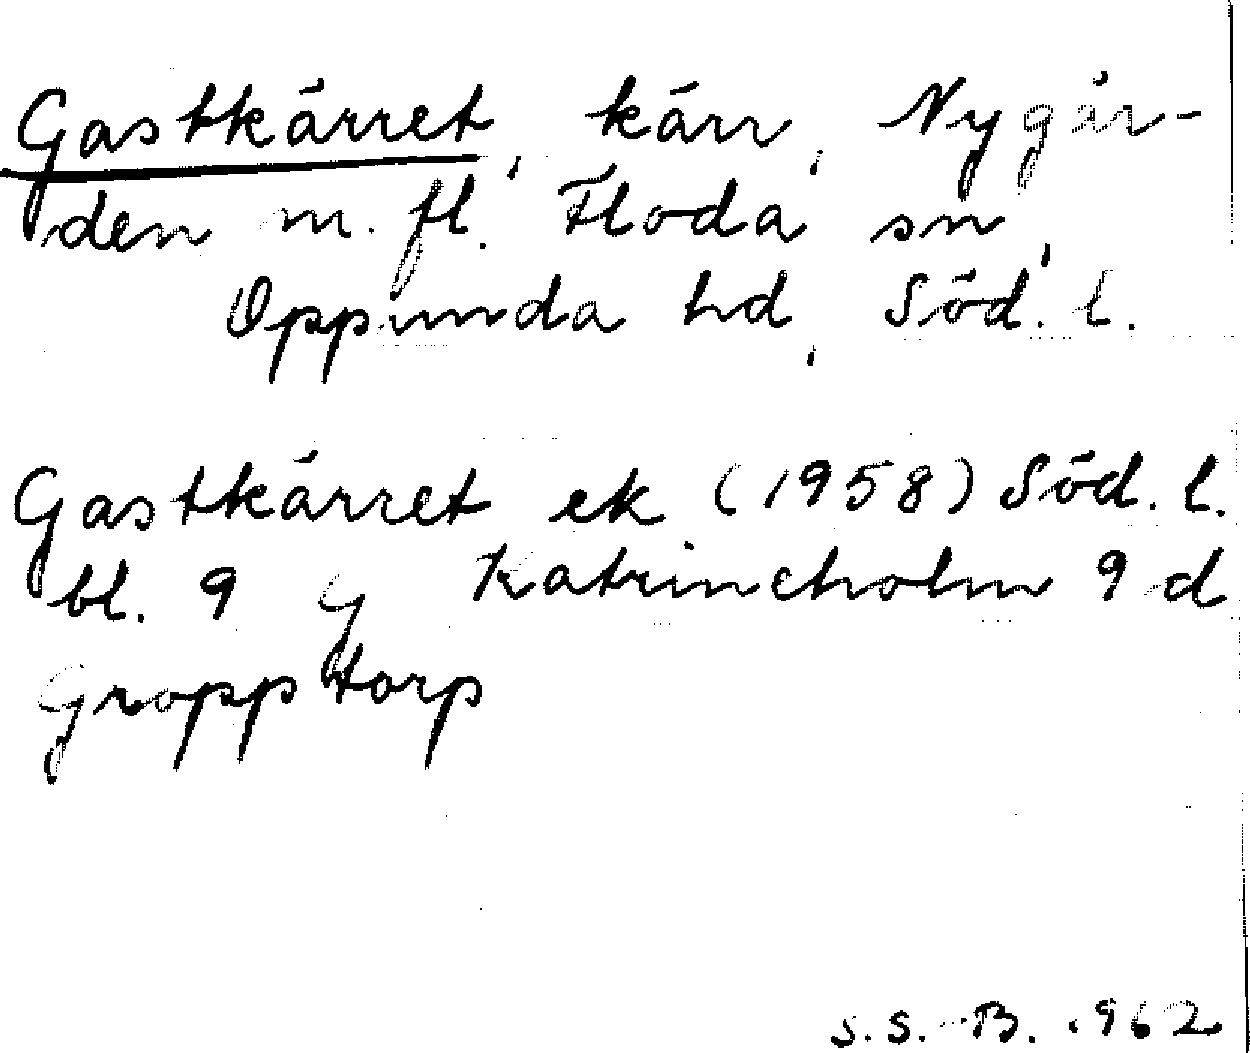 Gastkärret, kärr, Nygår-
den m. fl. Floda sn,
Oppunda hd, Söd. l.
Gastkärret ek (1958) Söd. l.
bl. 9 G Katrineholm 9 d
Gropptorp
S.S.-B. 1962